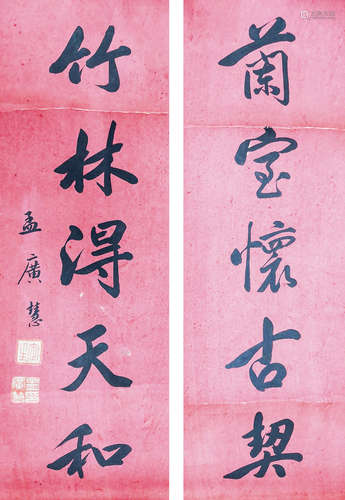 蘭室懷古契
竹林得天和
孟廣慧